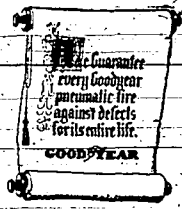 We Guarantee
every Goodyear
pneumatic tire
against defects
for its entire life.
GOODYEAR